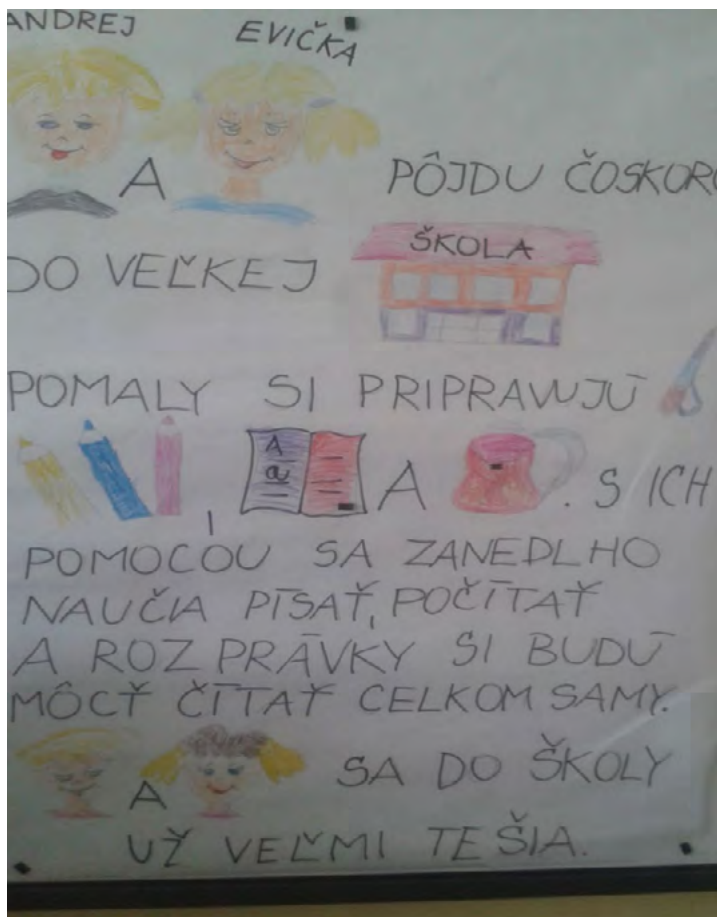 ANDREJ EVIČKA
A PÔJDU ČOSKORO
DO VEĽKEJ ŠKOLA
POMALY SI PRIPRAVUJÚ
, A a A . S ICH
POMOCOU SA ZANEDLHO
NAUČIA PÍSAŤ, POČÍTAŤ
A ROZPRÁVKY SI BUDÚ
MÔCŤ ČÍTAŤ CELKOM SAMY.
A SA DO ŠKOLY
UŽ VEĽMI TEŠIA.